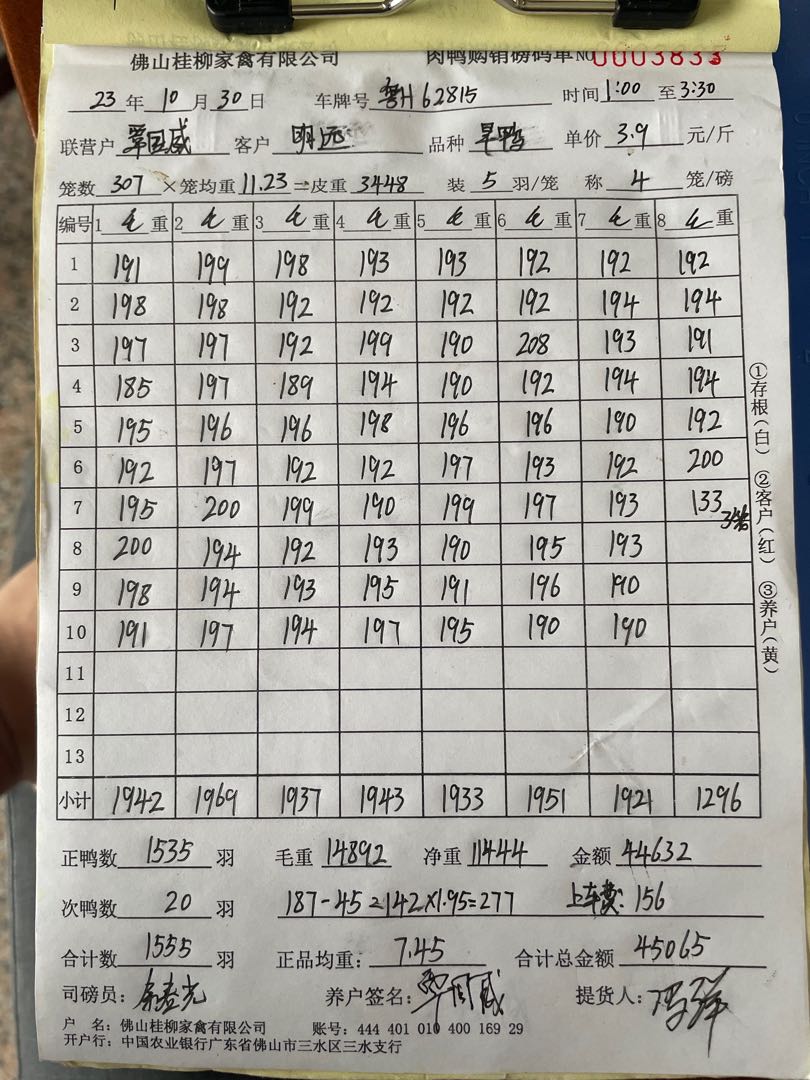 佛山桂柳家禽有限公司 肉鸭购销磅码单 NO 0003833
23 年 10 月 30 日 车牌号 粤H 62815 时间 1:00 至 3:30
联营户 覃国威 客户 明远 品种 旱鸭 单价 3.9 元/斤
笼数 307 ×笼均重 11.23 =皮重 3448 装 5 羽/笼 称 4 笼/磅
编号 1 毛 重 2 毛 重 3 毛 重 4 毛 重 5 毛 重 6 毛 重 7 毛 重 8 毛 重
1 191 199 198 193 193 192 192 192
2 198 198 192 192 192 192 194 194
3 197 197 192 199 190 208 193 191
4 185 197 189 194 190 192 194 194
5 195 196 196 198 196 196 190 192
6 192 197 192 192 197 193 192 200
7 195 200 199 190 199 197 193 133 3笼
8 200 194 192 193 190 195 193
9 198 194 193 195 191 196 190
10 191 197 194 197 195 190 190
11
12
13
小计 1942 1969 1937 1943 1933 1951 1921 1296
①存根(白) ②客户(红) ③养户(黄)
正鸭数 1535 羽 毛重 14892 净重 11444 金额 44632
次鸭数 20 羽 187-45=142×1.95=277 上车费: 156
合计数 1555 羽 正品均重: 7.45 合计总金额 45065
司磅员: 养户签名: 覃国威 提货人:
户 名: 佛山桂柳家禽有限公司 账号: 444 401 010 400 169 29
开户行: 中国农业银行广东省佛山市三水区三水支行